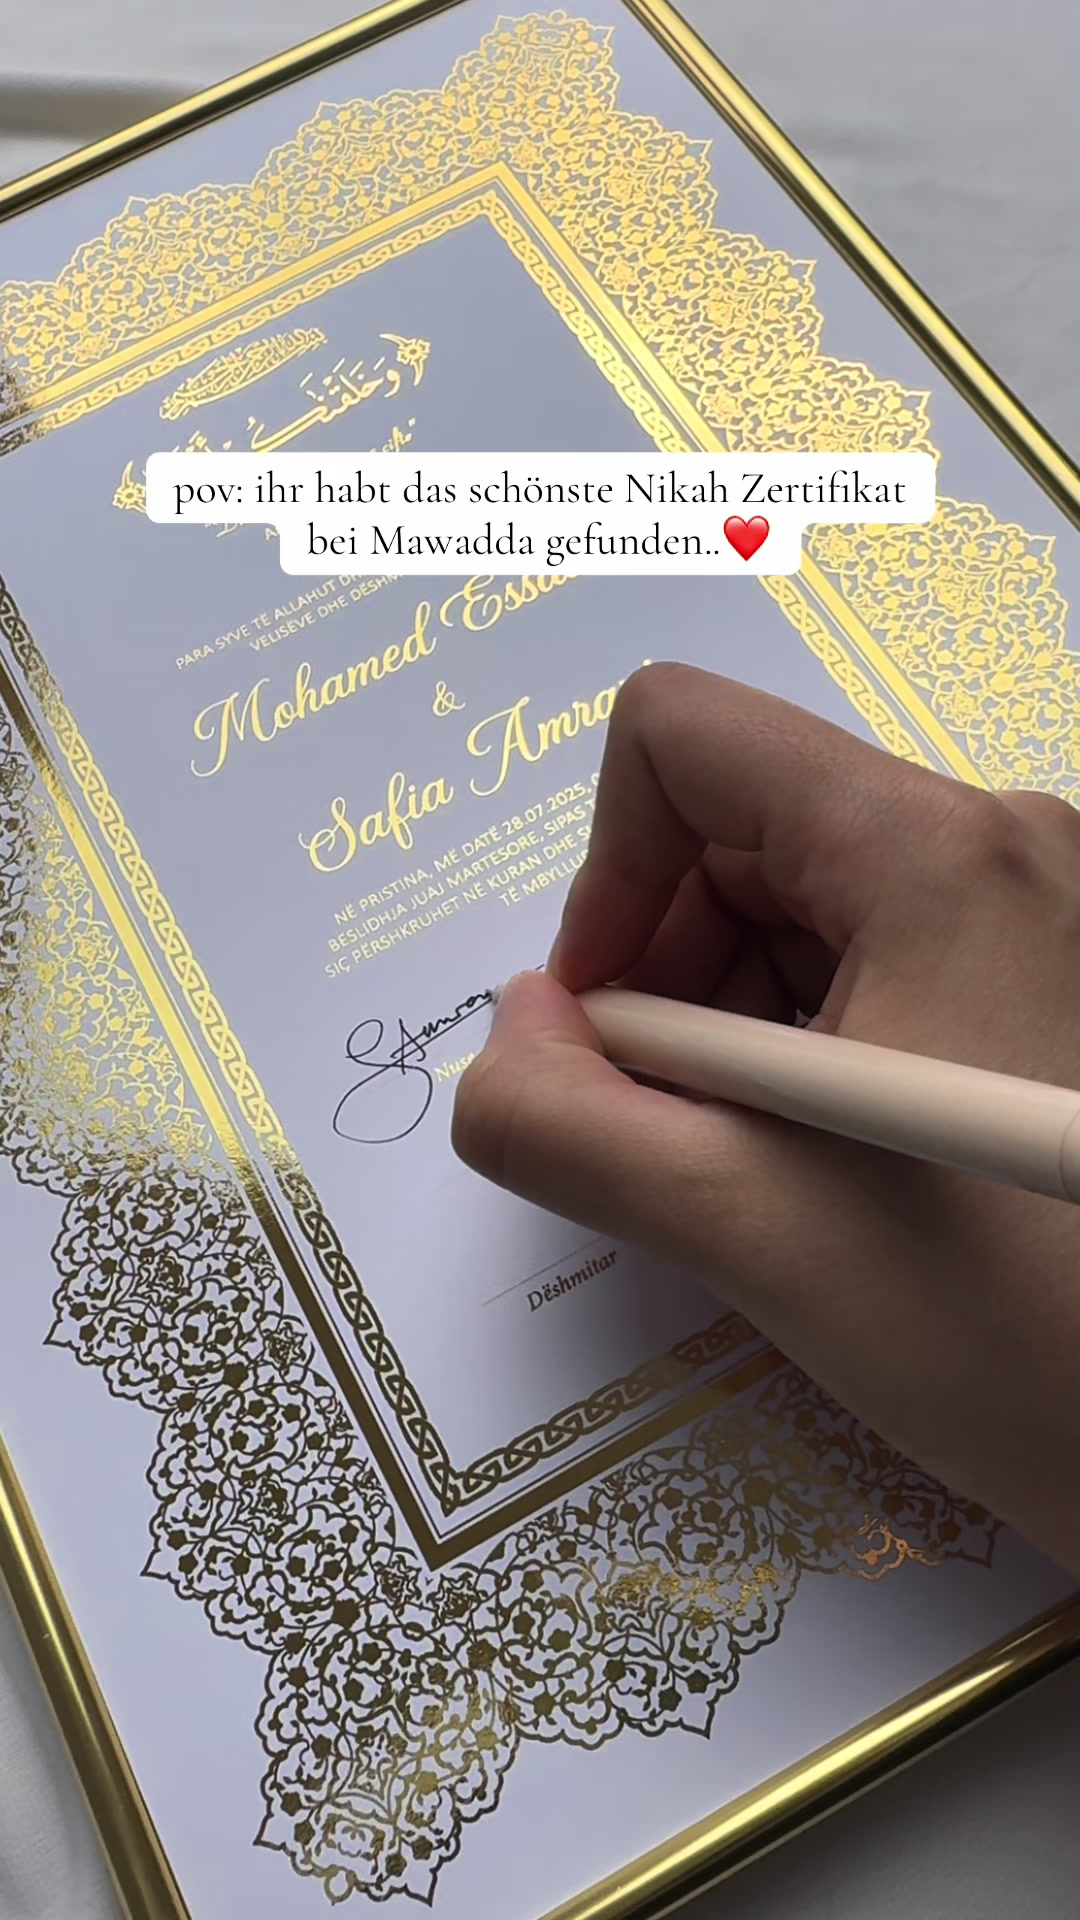 وَخَلَقْنَاكُمْ
pov: ihr habt das schönste Nikah Zertifikat
bei Mawadda gefunden..❤️
PARA SYVE TË ALLAHUT
VELISËVE DHE
Mohamed
&
Safia
NË PRISTINA, MË DATË 28.07.2025,
BESLIDHJA JUAJ MARTESORE, SIPAS
SIÇ PËRSHKRUHET NË KURAN DHE
TË
Nuse
Dëshmitar